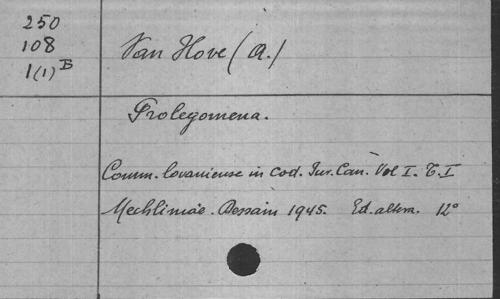 250
108
1(1)B
Van Hove (A.)
Prolegomena.
Comm. lovaniense in Cod. Jur. Can. Vol I. T. I
Mechliniae. Dessain 1945. Ed. altera. 12°